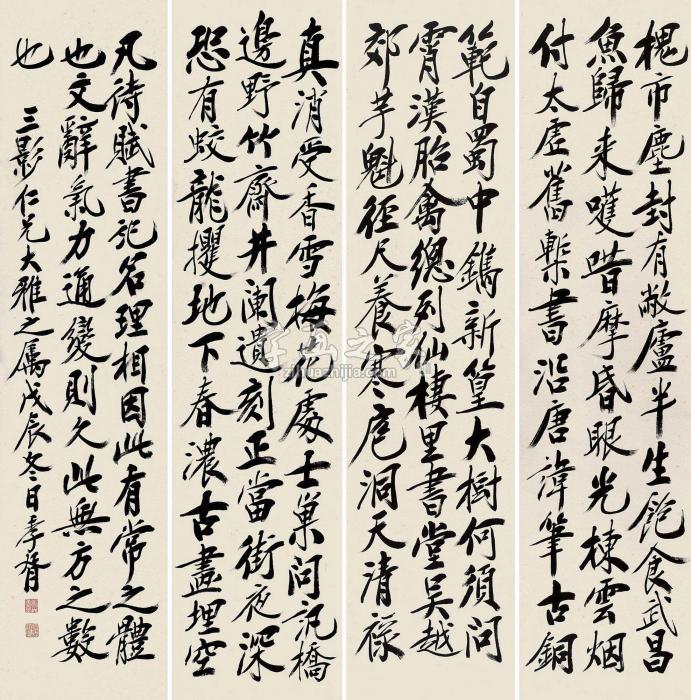 槐市塵封有敝廬半生飽食武昌
魚歸来嘆㫺摩昏眼光棟雲烟
付太虛舊槧書沿唐諱筆古銅
範自蜀中鐫新篁大樹何須問
霄漢胎禽總列仙棲里書堂吴越
郊芋魁徑尺養寒庖洞天清祿
真消受香雪梅花處士巢問訊橋
邊野竹齋井闌遺刻正當街夜深
恐有蛟龍攫地下春濃古畫埋空
凡詩賦書記名理相因此有常之體
也文辭氣力通變則久此無方之數
也 三影仁兄大雅之属戊辰冬日孝胥
字画之家
zihuazhijia.com